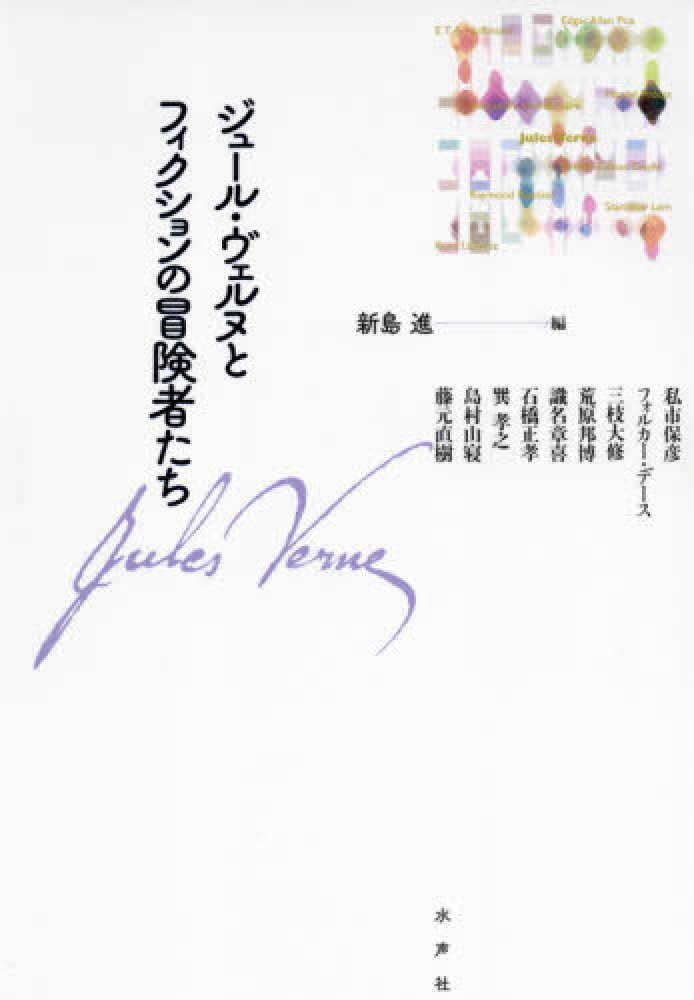 ジュール・ヴェルヌと
フィクションの冒険者たち
Edgar Allan Poe
Jules Verne
新島 進 編
私市保彦
フォルカー・デース
三枝大修
荒原邦博
識名章喜
石橋正孝
巽 孝之
島村山寝
藤元直樹
Jules Verne
水声社